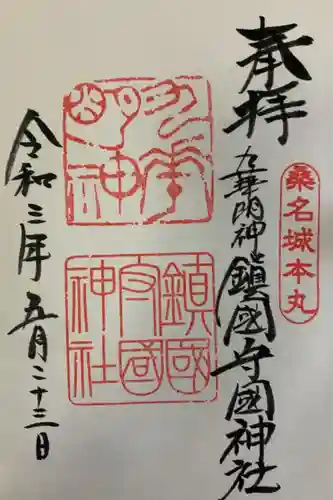 桑名城本丸
奉拝
九華明神
鎮國守國神社
九華明神
鎮國守國神社
令和三年五月二十三日